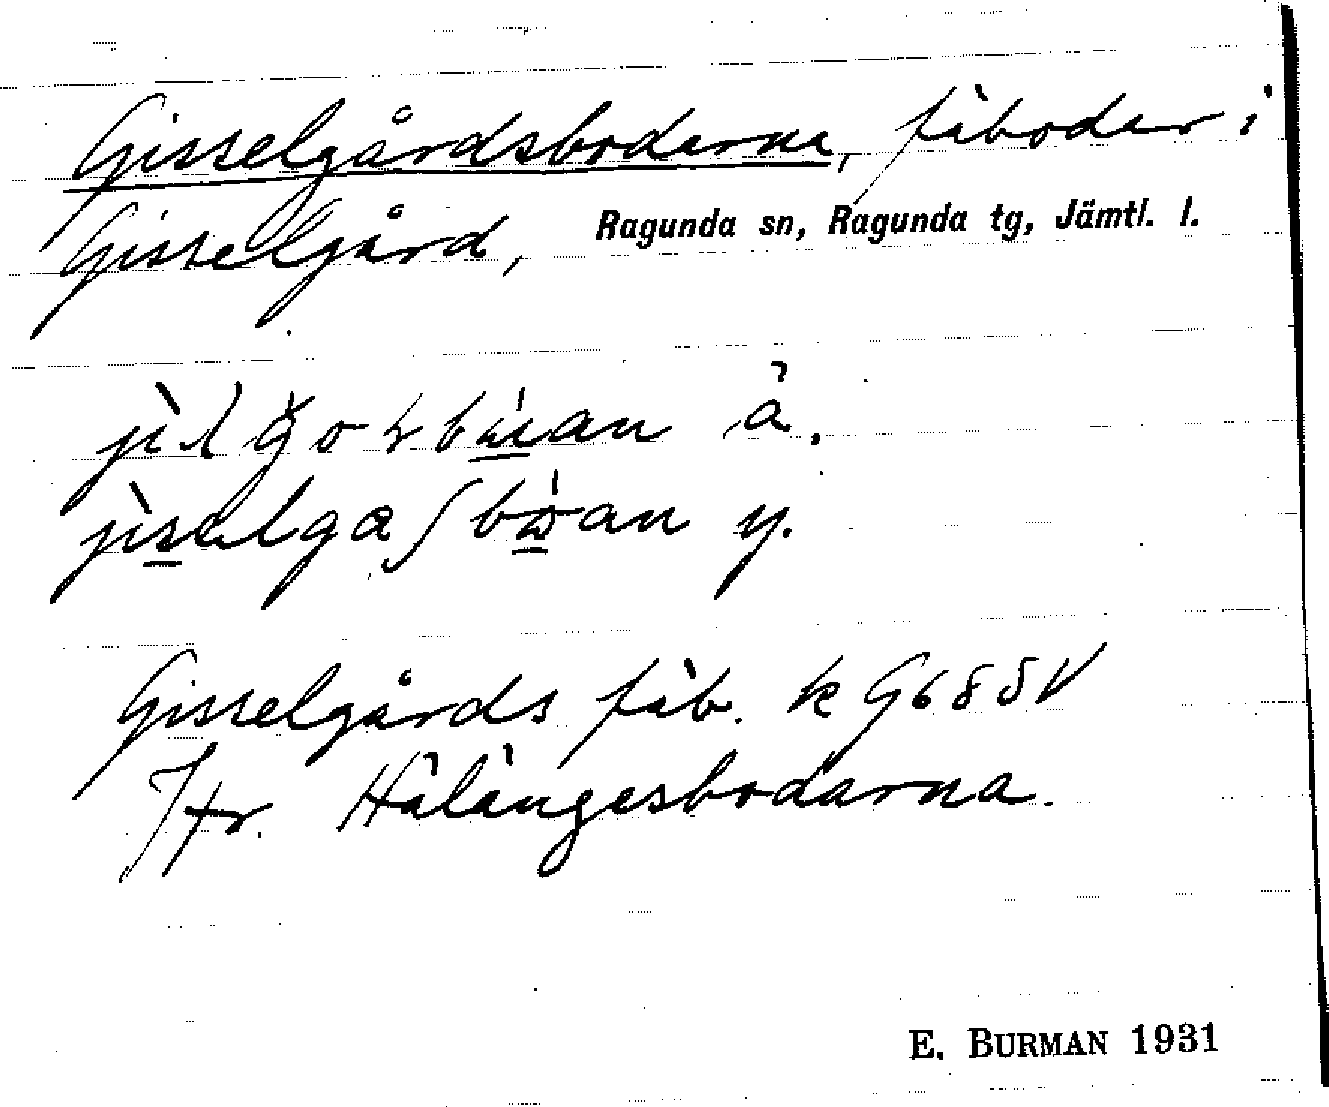 Gisselgårdsbodarna, fäboder i
Gisselgård, Ragunda sn, Ragunda tg, Jämtl. l.
ä.
y.
Gisselgårds fäb. k G68SV
Jfr. Hålångesbodarna.
E. BURMAN 1931